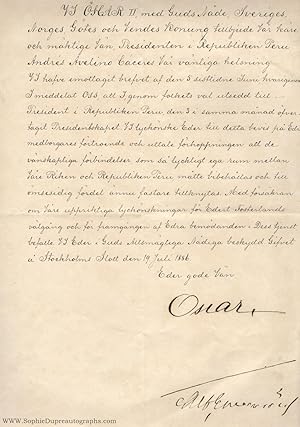 VI OSCAR II, med Guds Nåde, Sveriges,
Norges, Götes och Vendes Konung tillbjude Vår Käre
och mäktige Vän, Presidenten i Republiken Peru
Andres Avelino Caceres Vår vänliga helsning.
VI hafve emottagit brefvet af den 5 sistlidne Juni, hvarigenom
I meddelat Oss, att I genom folkets val utsedd till
President i Republiken Peru, den 3 i samma månad öfver-
tagit Presidentskapet. VI lyckönske Eder till detta bevis på Edra
medborgares förtroende och uttala förhoppningen att de
vänskapliga förbindelser som så lyckligt ega rum mellan
Våra Riken och Republiken Peru, måtte bibehållas och till
ömsesidig fördel ännu fastare tillknytas. Med försäkran
om Våra uppriktiga lyckönskningar för Edert Fosterlands
välgång och för framgången af Edra bemödanden i Dess tjenst
befalle VI Eder i Guds Allsmägtiga Nådiga beskydd. Gifvet
å Stockholms Slott den 19 Juli 1886.
Eder gode Vän
Oscar
© www.SophieDupreautographs.com